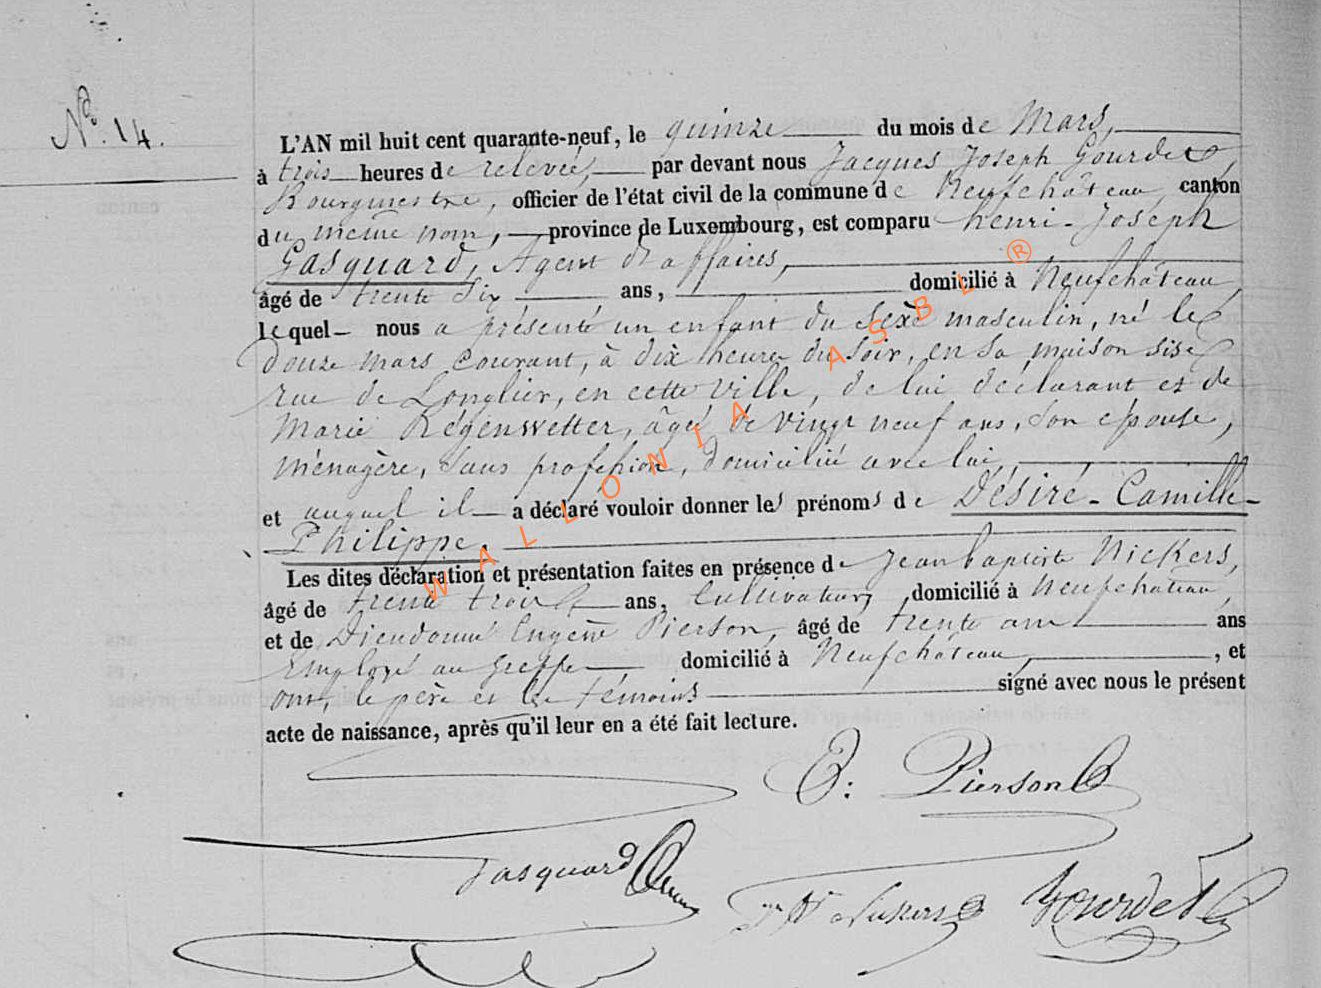 No. 14.
L'AN mil huit cent quarante-neuf, le quinze du mois de Mars,
à trois heures de relevée, par devant nous Jacques Joseph Gourdet,
Bourgmestre, officier de l'état civil de la commune de Neufchâteau, canton
du même nom, province de Luxembourg, est comparu henri-Joseph
Gasquard, Agent d'affaires,
âgé de trente six ans, domicilié à Neufchâteau,
lequel nous a présenté un enfant du sexe masculin, né le
douze mars courant, à dix heures du soir, en sa maison sise
rue de Longlier, en cette ville, de lui déclarant et de
Marie Régenwetter, âgé de vingt neuf ans, son épouse,
ménagère, sans profession, domiciliée avec lui,
et auquel il a déclaré vouloir donner les prénoms de Désiré-Camille-
Philippe.
Les dites déclaration et présentation faites en présence de Jean baptiste Nickers,
âgé de trente trois ans, Cultivateur, domicilié à Neufchâteau,
et de Dieudonné Eugène Pierson, âgé de trente ans ans
Employé au Greffe domicilié à Neufchâteau, , et
ont, le père et les témoins signé avec nous le présent
acte de naissance, après qu'il leur en a été fait lecture.
Pierson
Gasquard
Gourdet
WALLONIA ASBL ®